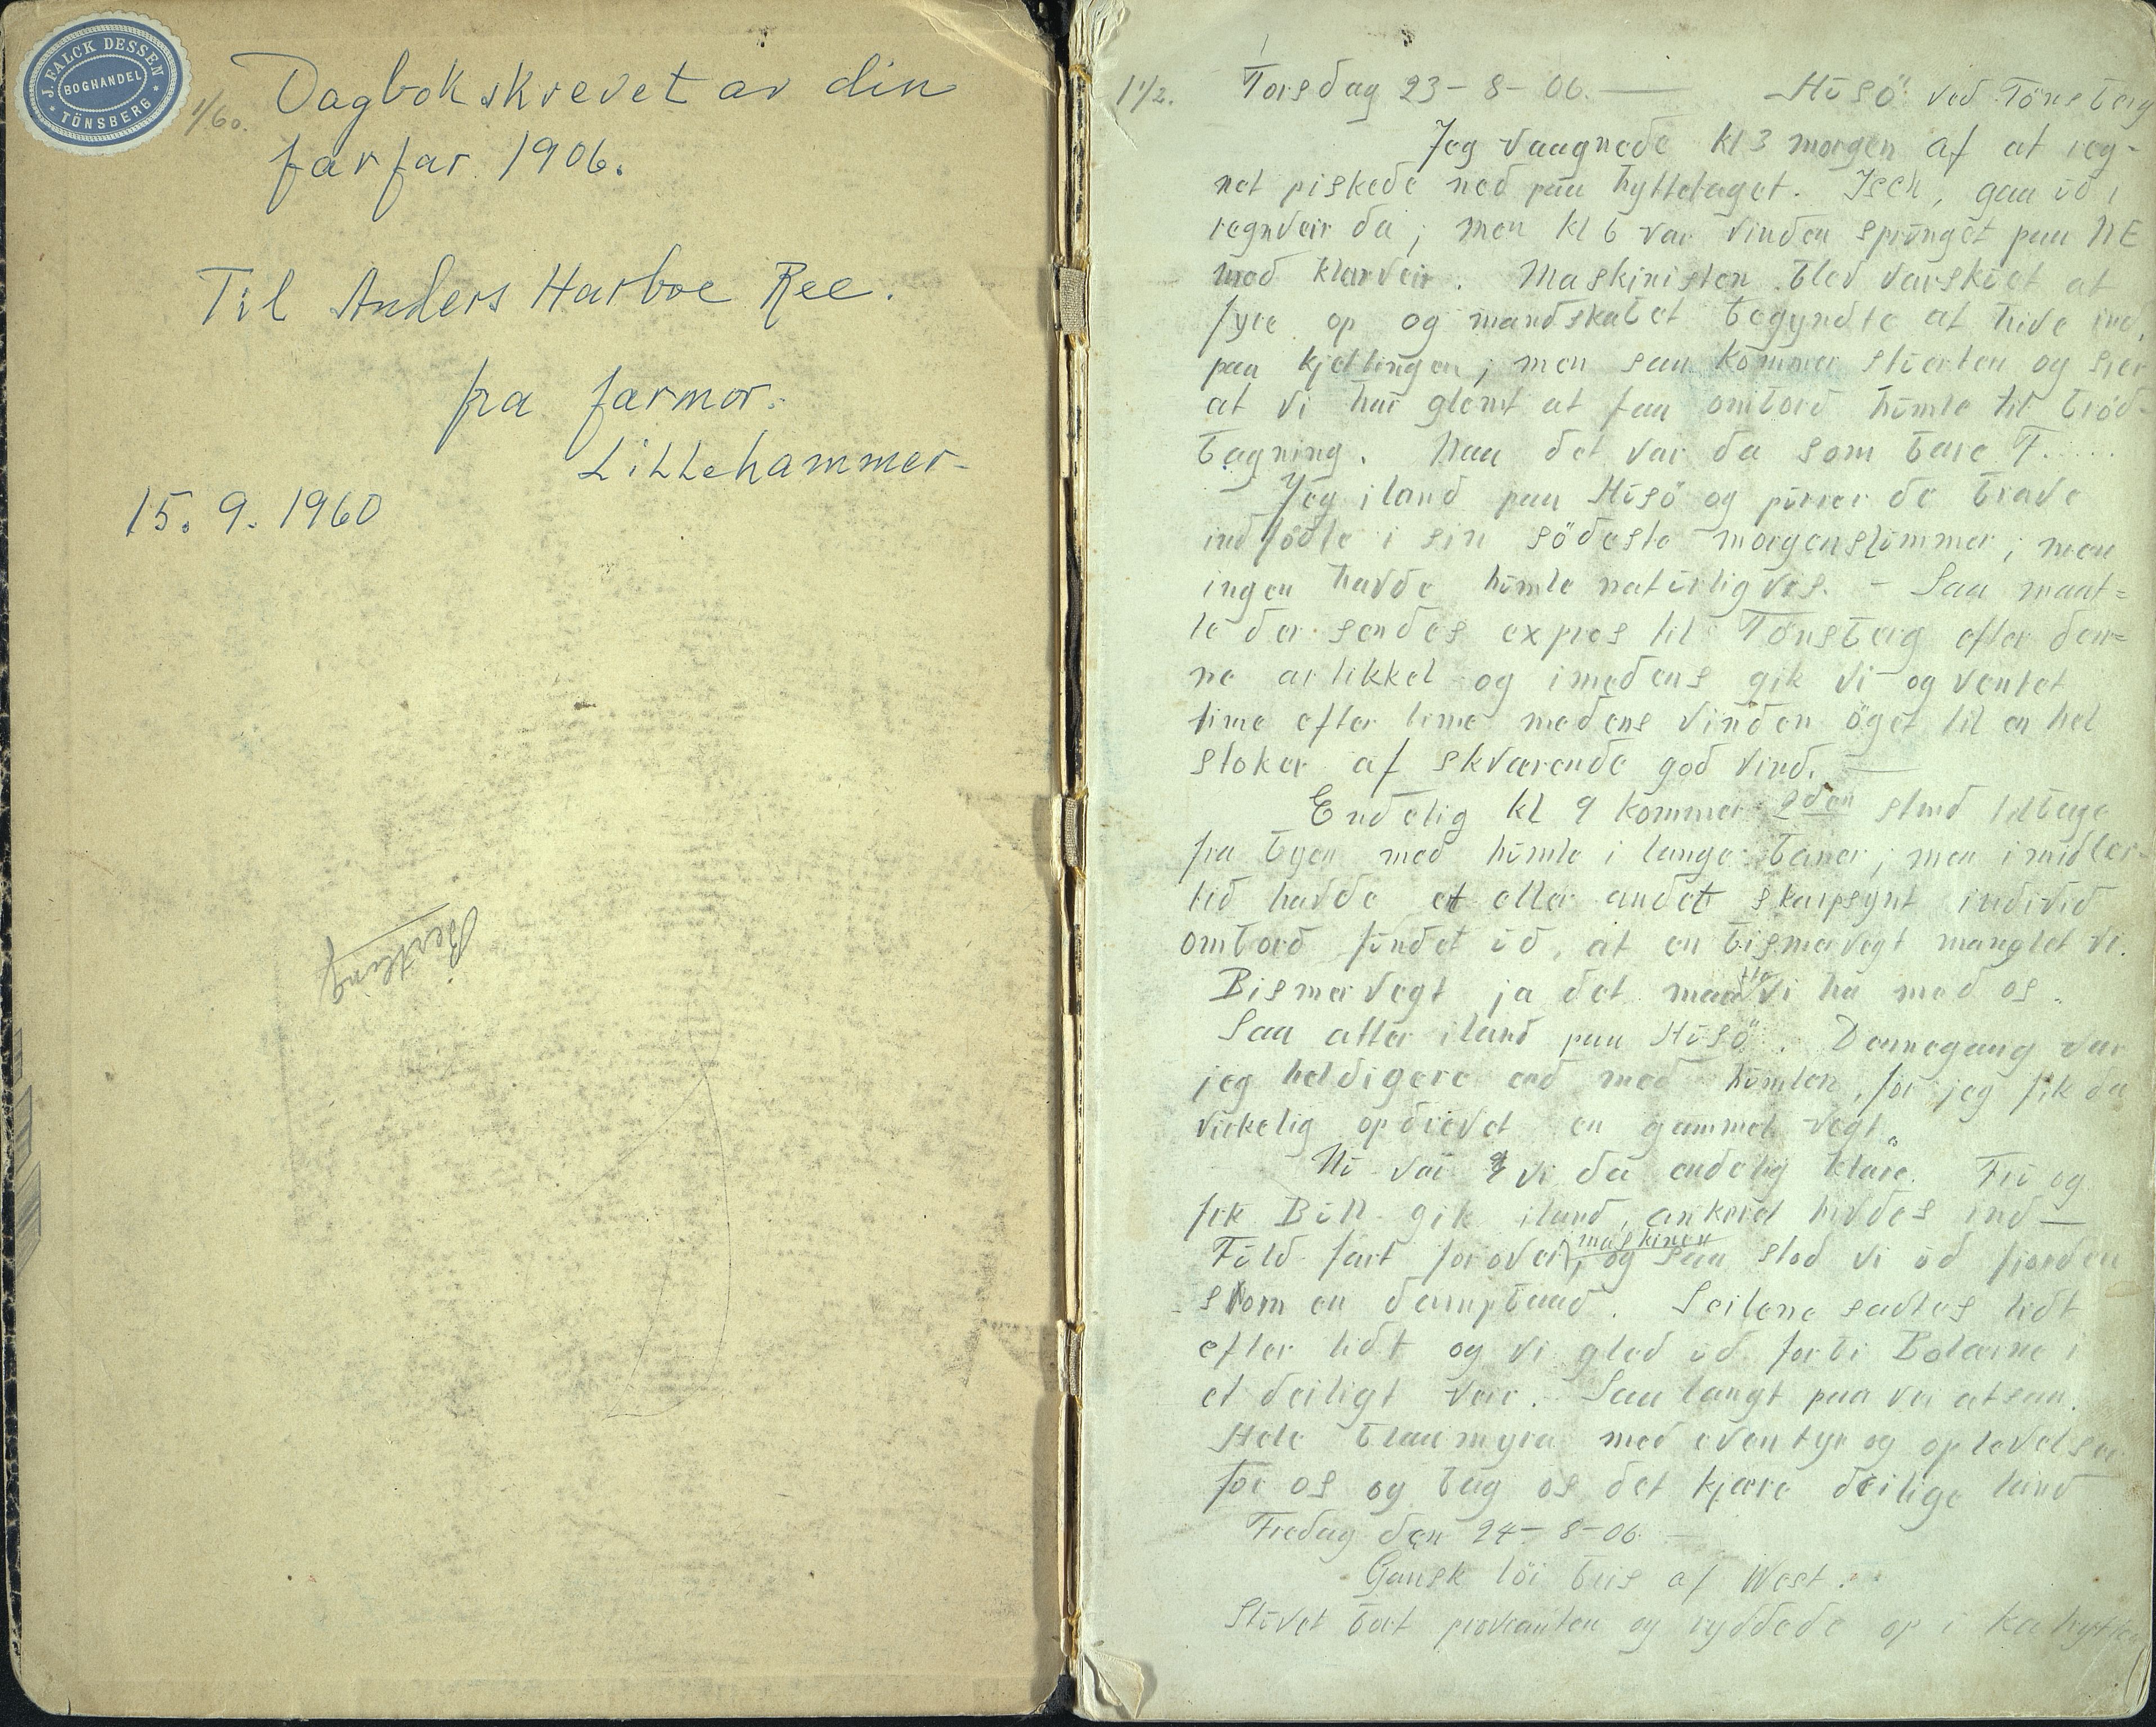 J. FALCK DESSEN
BOGHANDEL
TÖNSBERG
1/60.
Dagbok skrevet av din
farfar 1906.
Til Anders Harboe Ree.
fra farmor.
Lillehammer-
15. 9. 1960
Bertling
1 1/2.
Torsdag 23-8-06. — Husö ved Tönsberg
Jeg vaagnede kl 3 morgen af at reg-
net piskede ned paa hyttetaget. Isch, gaa ud i
regnveir da; men kl 6 var vinden sprunget paa NE
med klarveir. Maskinisten blev varskuet at
fyre op og mandskabet begyndte at hive ind
paa kjettingen; men saa kommer stuerten og sier
at vi har glemt at faa ombord humle til bröd-
bagning. Naa det var da som bare F.....
Jeg iland paa Husö og purrer de brave
indfödte i sin södeste morgenslummer; men
ingen havde humle naturligves. - Saa maat=
te der sendes expres til Tönsberg efter den=
ne artikkel og imedens gik vi og ventet
time efter time medens vinden öget til en hel
stoker af skværende god vind. —
Endelig kl 9 kommer 2den stmd tilbage
fra byen med humle i lange baner; men imidler-
tid havde et eller andet skarpsynt individ
ombord fundet ud, at en bismervegt manglet vi.
Bismervegt ja det maatte vi ha med os.
Saa atter iland paa Husö. Dennegang var
jeg heldigere end med humlen, for jeg fik da
virkelig opdrevet en gammel vegt.
Nu var vi da endelig klare. Fru og
frk Bull gik iland, ankeret hivdes ind —
Fuld fart forover maskinen, og saa stod vi ud fjorden
som en dampbaad. Seilene sattes lidt
efter lidt og vi gled ud forbi Bolærne i
et deiligt veir. Saa langt paa vei atsaa.
Hele blaamyra med eventyr og oplevelser
for os og bag os det kjære deilige land
Fredag den 24-8-06 —
Gansk löi bris af West.
Stuvet bort provianten og ryddede op i kahytten